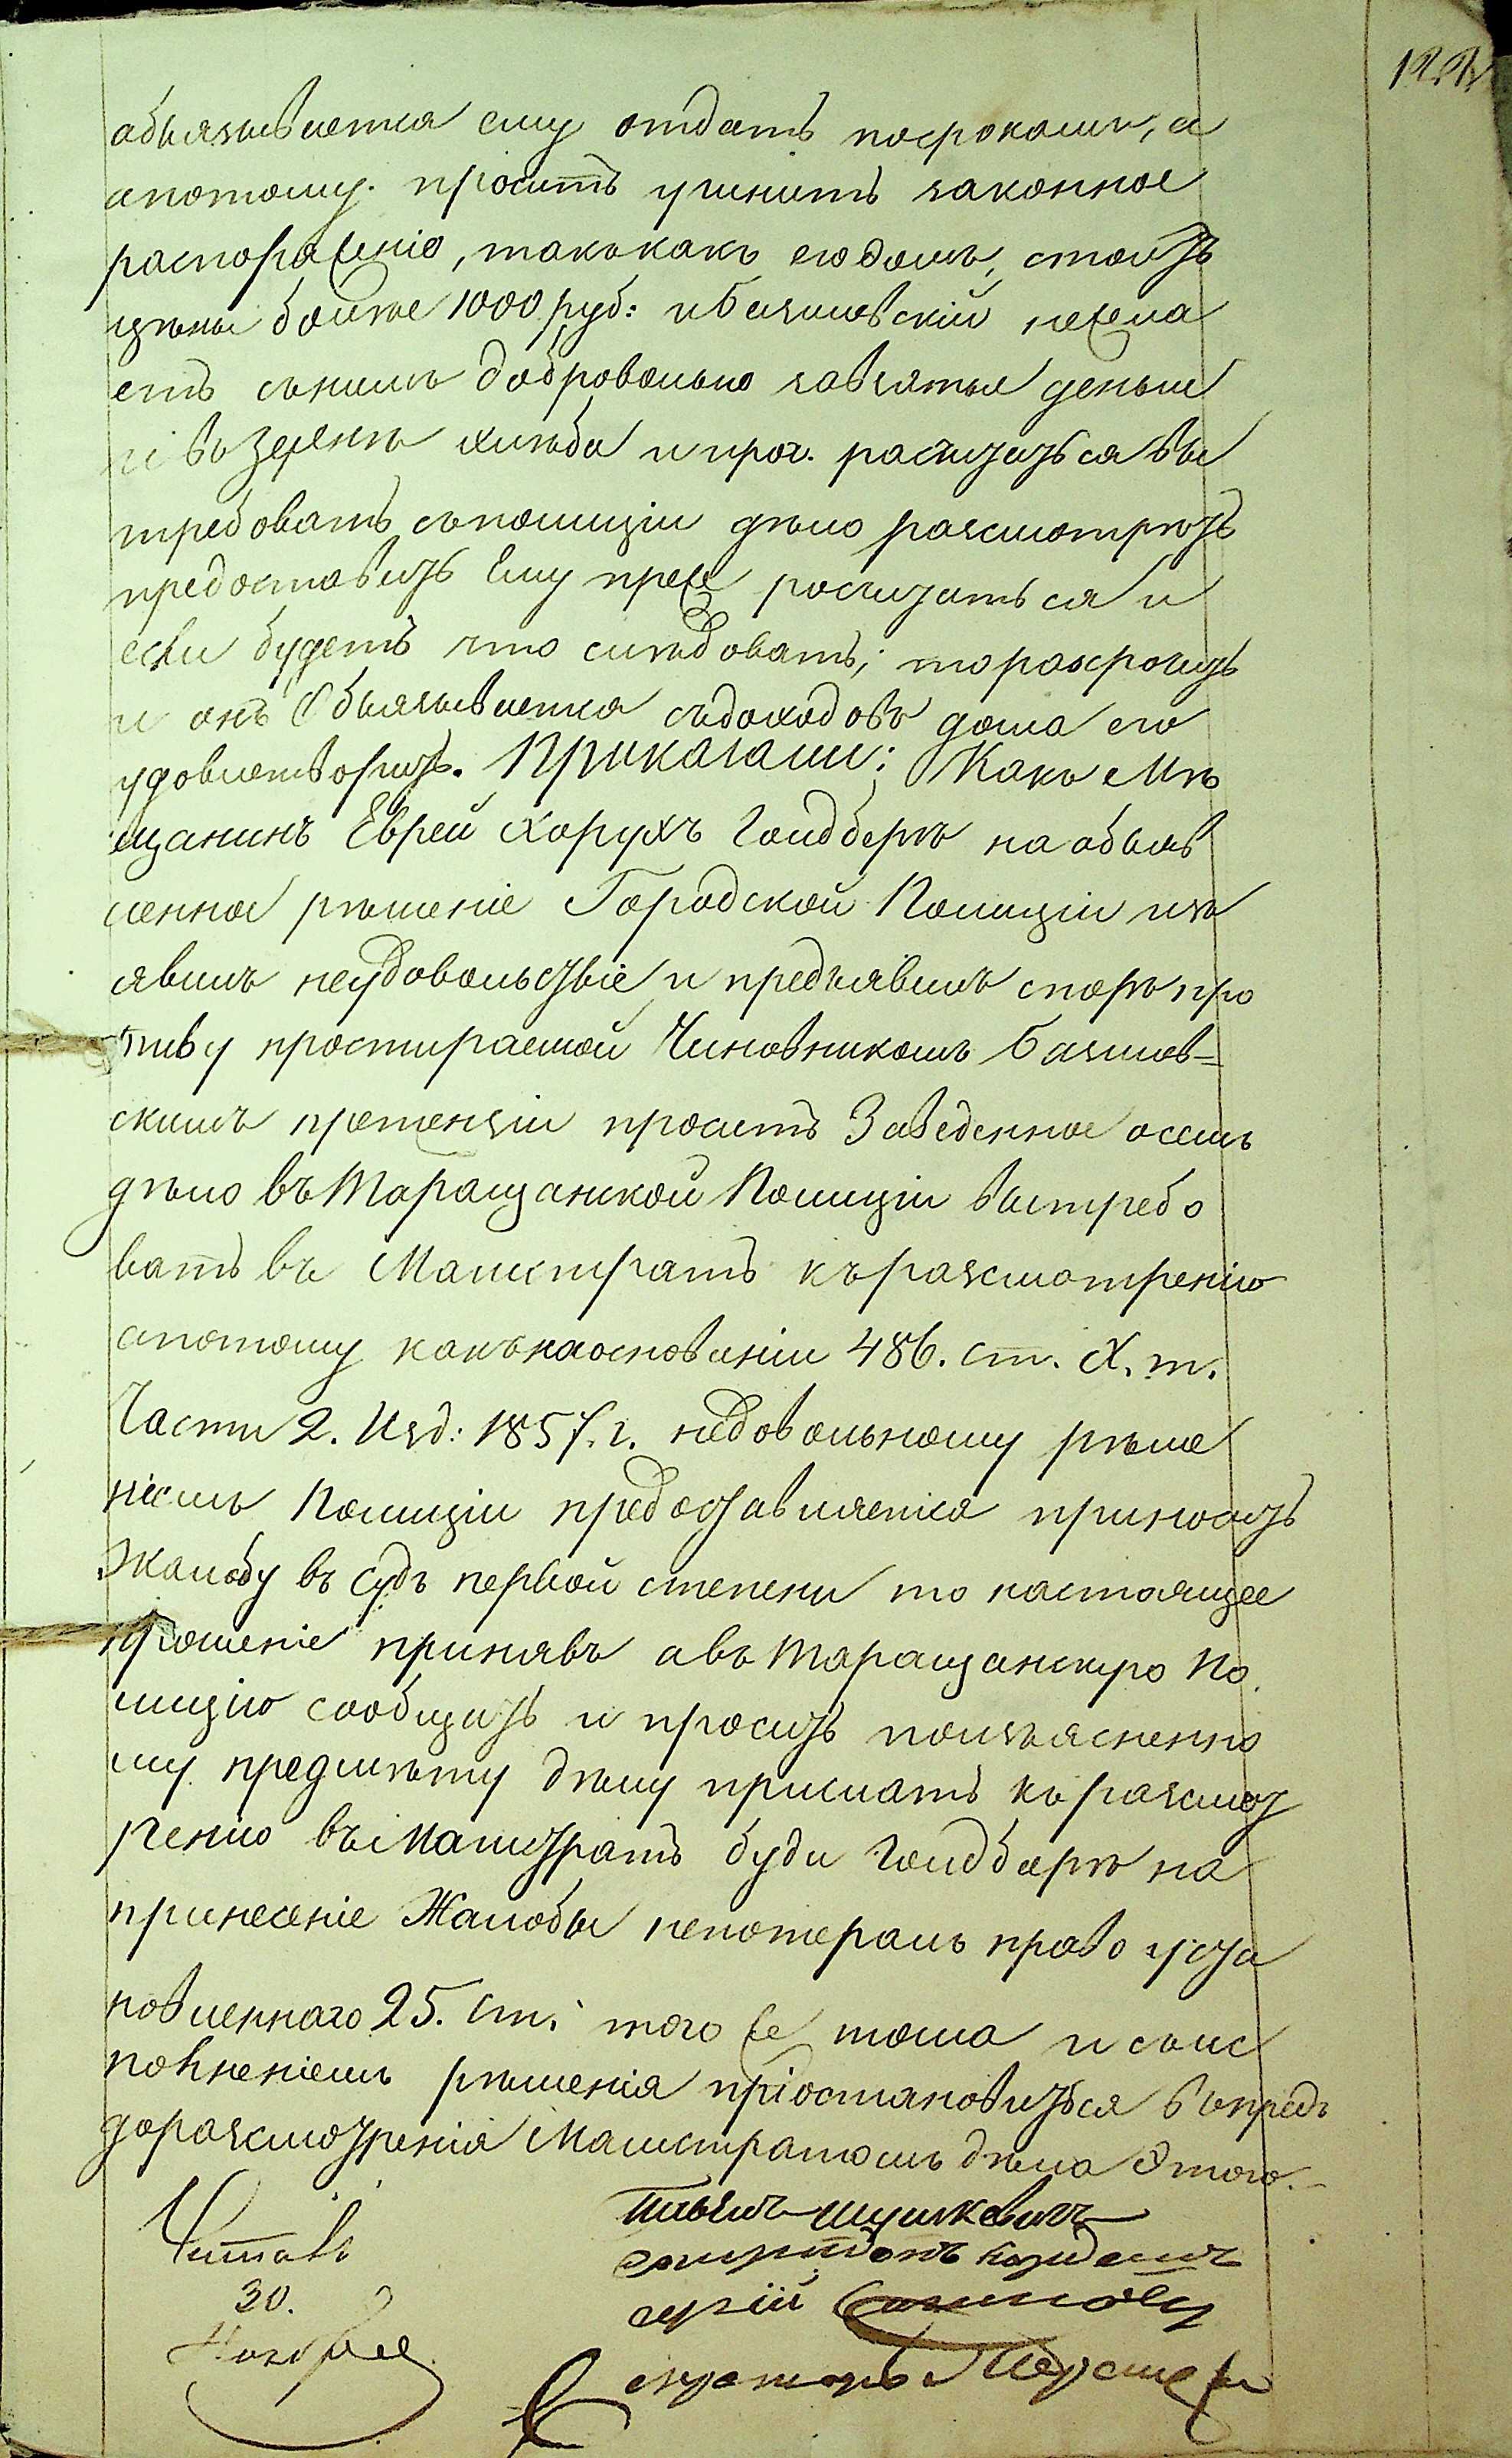 122
обьязывается ему отдать посрокамъ, а
апотому. проситъ учинить законное
распоряженіе, такъкакъ егодомъ, стоитъ
цены болѣе 1000 руб: иБазилевскій нежела
етъ снимъ добровольно завзятые деньги
и въ зернѣ хлѣба и проч. расчитаться вы
требовать съполиціи дѣло разсмотрѣть
предоставить Ему преж росчитаться и
если будетъ что слѣдовать; торазсрочить
и онъ Обьязывается съдоходовъ дома его
удовлетворить. Приказали: Какъ Мѣ
щанинъ Еврей Хорухъ Голдберъ на обьяв
ленное рѣшеніе Городской Полиціи изъ
явилъ неудовольствіе и предъявилъ споръ про
тиву простираемой Чиновникомъ Базилев=
скимъ претензіи проситъ Заведенное осемъ
дѣло въ Таращанской Полиціи вытребо
вать въ Магистратъ къразсмотренію
апотому какънаосновании 486. ст. X. т.
Части 2. Изд: 1857. г. недовольному рѣше
ніемъ Полиціи предоставляется приносить
Жалобу въ Судъ первой степени то настоящее
прошеніе принявъ авъ Таращанскую По
лицію сообщить и просить поизъясненно
му предмѣту дѣлу прислать къразсмот
ренію въ Магистратъ буди Голдберъ на
принесеніе Жалобы непотералъ право уста
новленнаго 25. ст. того же тома и съис
полненіемъ рѣшенія пріостановиться впредь
доразсмотренія Магистратомъ дѣла Этого.
Читалъ
30.
Ноября